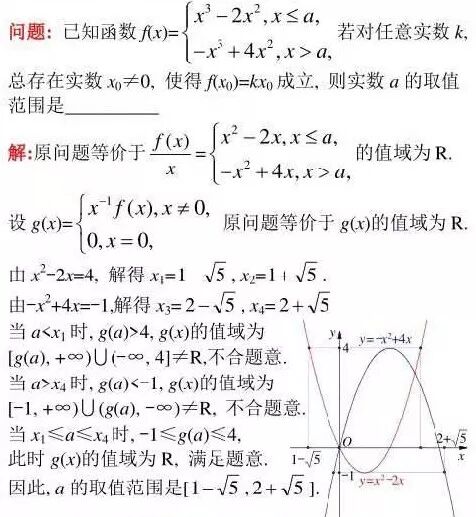 问题: 已知函数 f(x)={x³−2x², x≤a, −x³+4x², x>a, 若对任意实数 k,
总存在实数 x₀≠0, 使得 f(x₀)=kx₀ 成立, 则实数 a 的取值
范围是
解:原问题等价于 f(x)/x={x²−2x, x≤a, −x²+4x, x>a, 的值域为 R.
设 g(x)={x⁻¹f(x), x≠0, 0, x=0, 原问题等价于 g(x)的值域为 R.
由 x²-2x=4, 解得 x₁=1 √5 , x₂=1+√5 .
由-x²+4x=-1,解得 x₃=2−√5 , x₄=2+√5
当 a<x₁ 时, g(a)>4, g(x)的值域为
[g(a), +∞)∪(-∞, 4]≠R,不合题意.
当 a>x₄ 时, g(a)<-1, g(x)的值域为
[-1, +∞)∪(g(a), -∞)≠R, 不合题意.
当 x₁≤a≤x₄ 时, -1≤g(a)≤4,
此时 g(x)的值域为 R, 满足题意.
因此, a 的取值范围是[1−√5 ,2+√5 ].
y
y=-x²+4x
4
O
2+√5
x
1−√5
−1
y=x²−2x